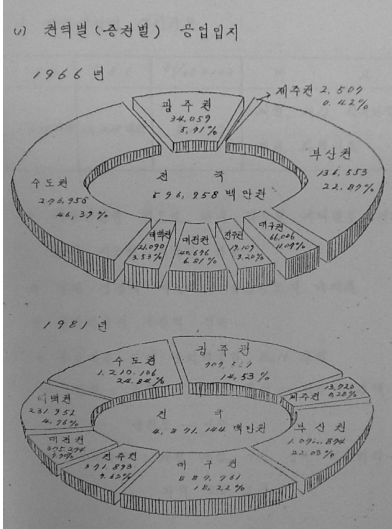 권역별 (중권별) 공업입지
1966년
제주권 2,509
0.42%
광주권
34,059
5.71%
부산권
136,553
22.87%
수도권
276,956
46,39%
전국
596,958 백만원
태백권
21,090
3.53%
대전권
40,696
6.81%
전주권
19,109
3.20%
대구권
66,006
11.09%
1981년
수도권
1,210,106
24.84%
광주권
14,53%
제주권
13,720
0.28%
태백권
231,952
4,76%
전국
4,871,144 백만원
부산권
22,03%
대전권
전주권
371,893
7.63%
대구권
887,761
18,22%